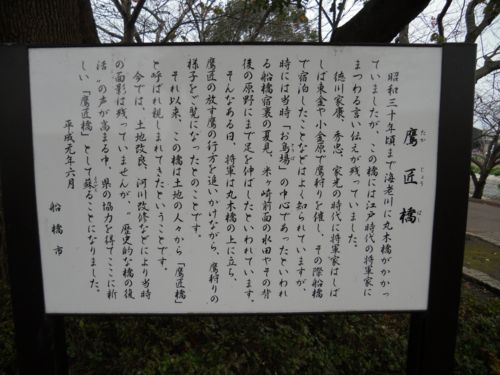 鷹匠橋
たか じょう ばし
昭和三十年頃まで海老川に丸木橋がかかっ
ていましたが、この橋には江戸時代の将軍家に
まつわる言い伝えが残っていました。
徳川家康、秀忠、家光の時代に将軍家はしば
しば東金や小金原で鷹狩りを催し、その際船橋
で宿泊したことなどはよく知られていますが、
時には当時「お鳥場」の中心であったといわれ
る船橋宿裏の夏見、米ヶ崎前面の水田やその背
後の原野にまで足を伸ばしたといわれています。
そんなある日、将軍は丸木橋の上に立ち、
鷹匠の放す鷹の行方を追いかけながら、鷹狩りの
様子をご覧になったとのことです。
それ以来、この橋は土地の人々から「鷹匠橋」
と呼ばれ親しまれてきたということです。
今では、土地改良、河川改修などにより当時
の面影は残っていませんが、“歴史的な橋の復
活”の声が高まる中、県の協力を得てここに新
しい「鷹匠橋」として蘇ることになりました。
平成元年六月
船橋市